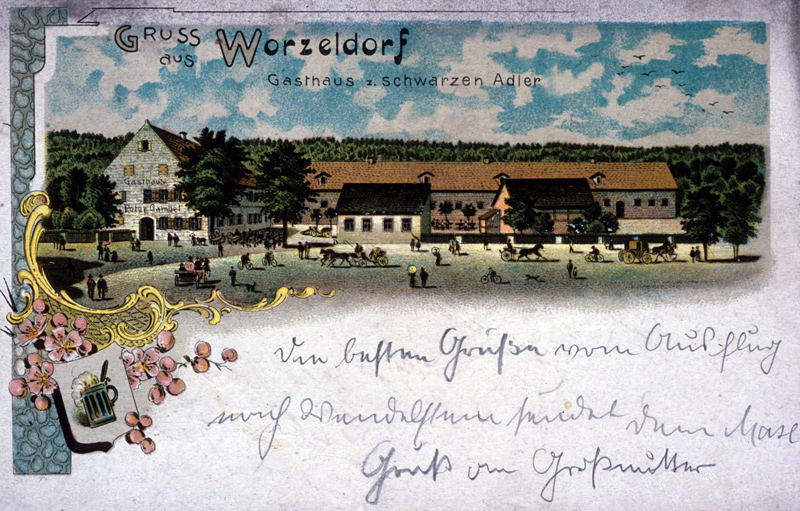 Gruss
aus Worzeldorf
Gasthaus z. schwarzen Adler
Gasthaus
Die besten Grüße vom Ausflug
nach Wendelstein sendet dem Maxl
Gruß an Großmutter